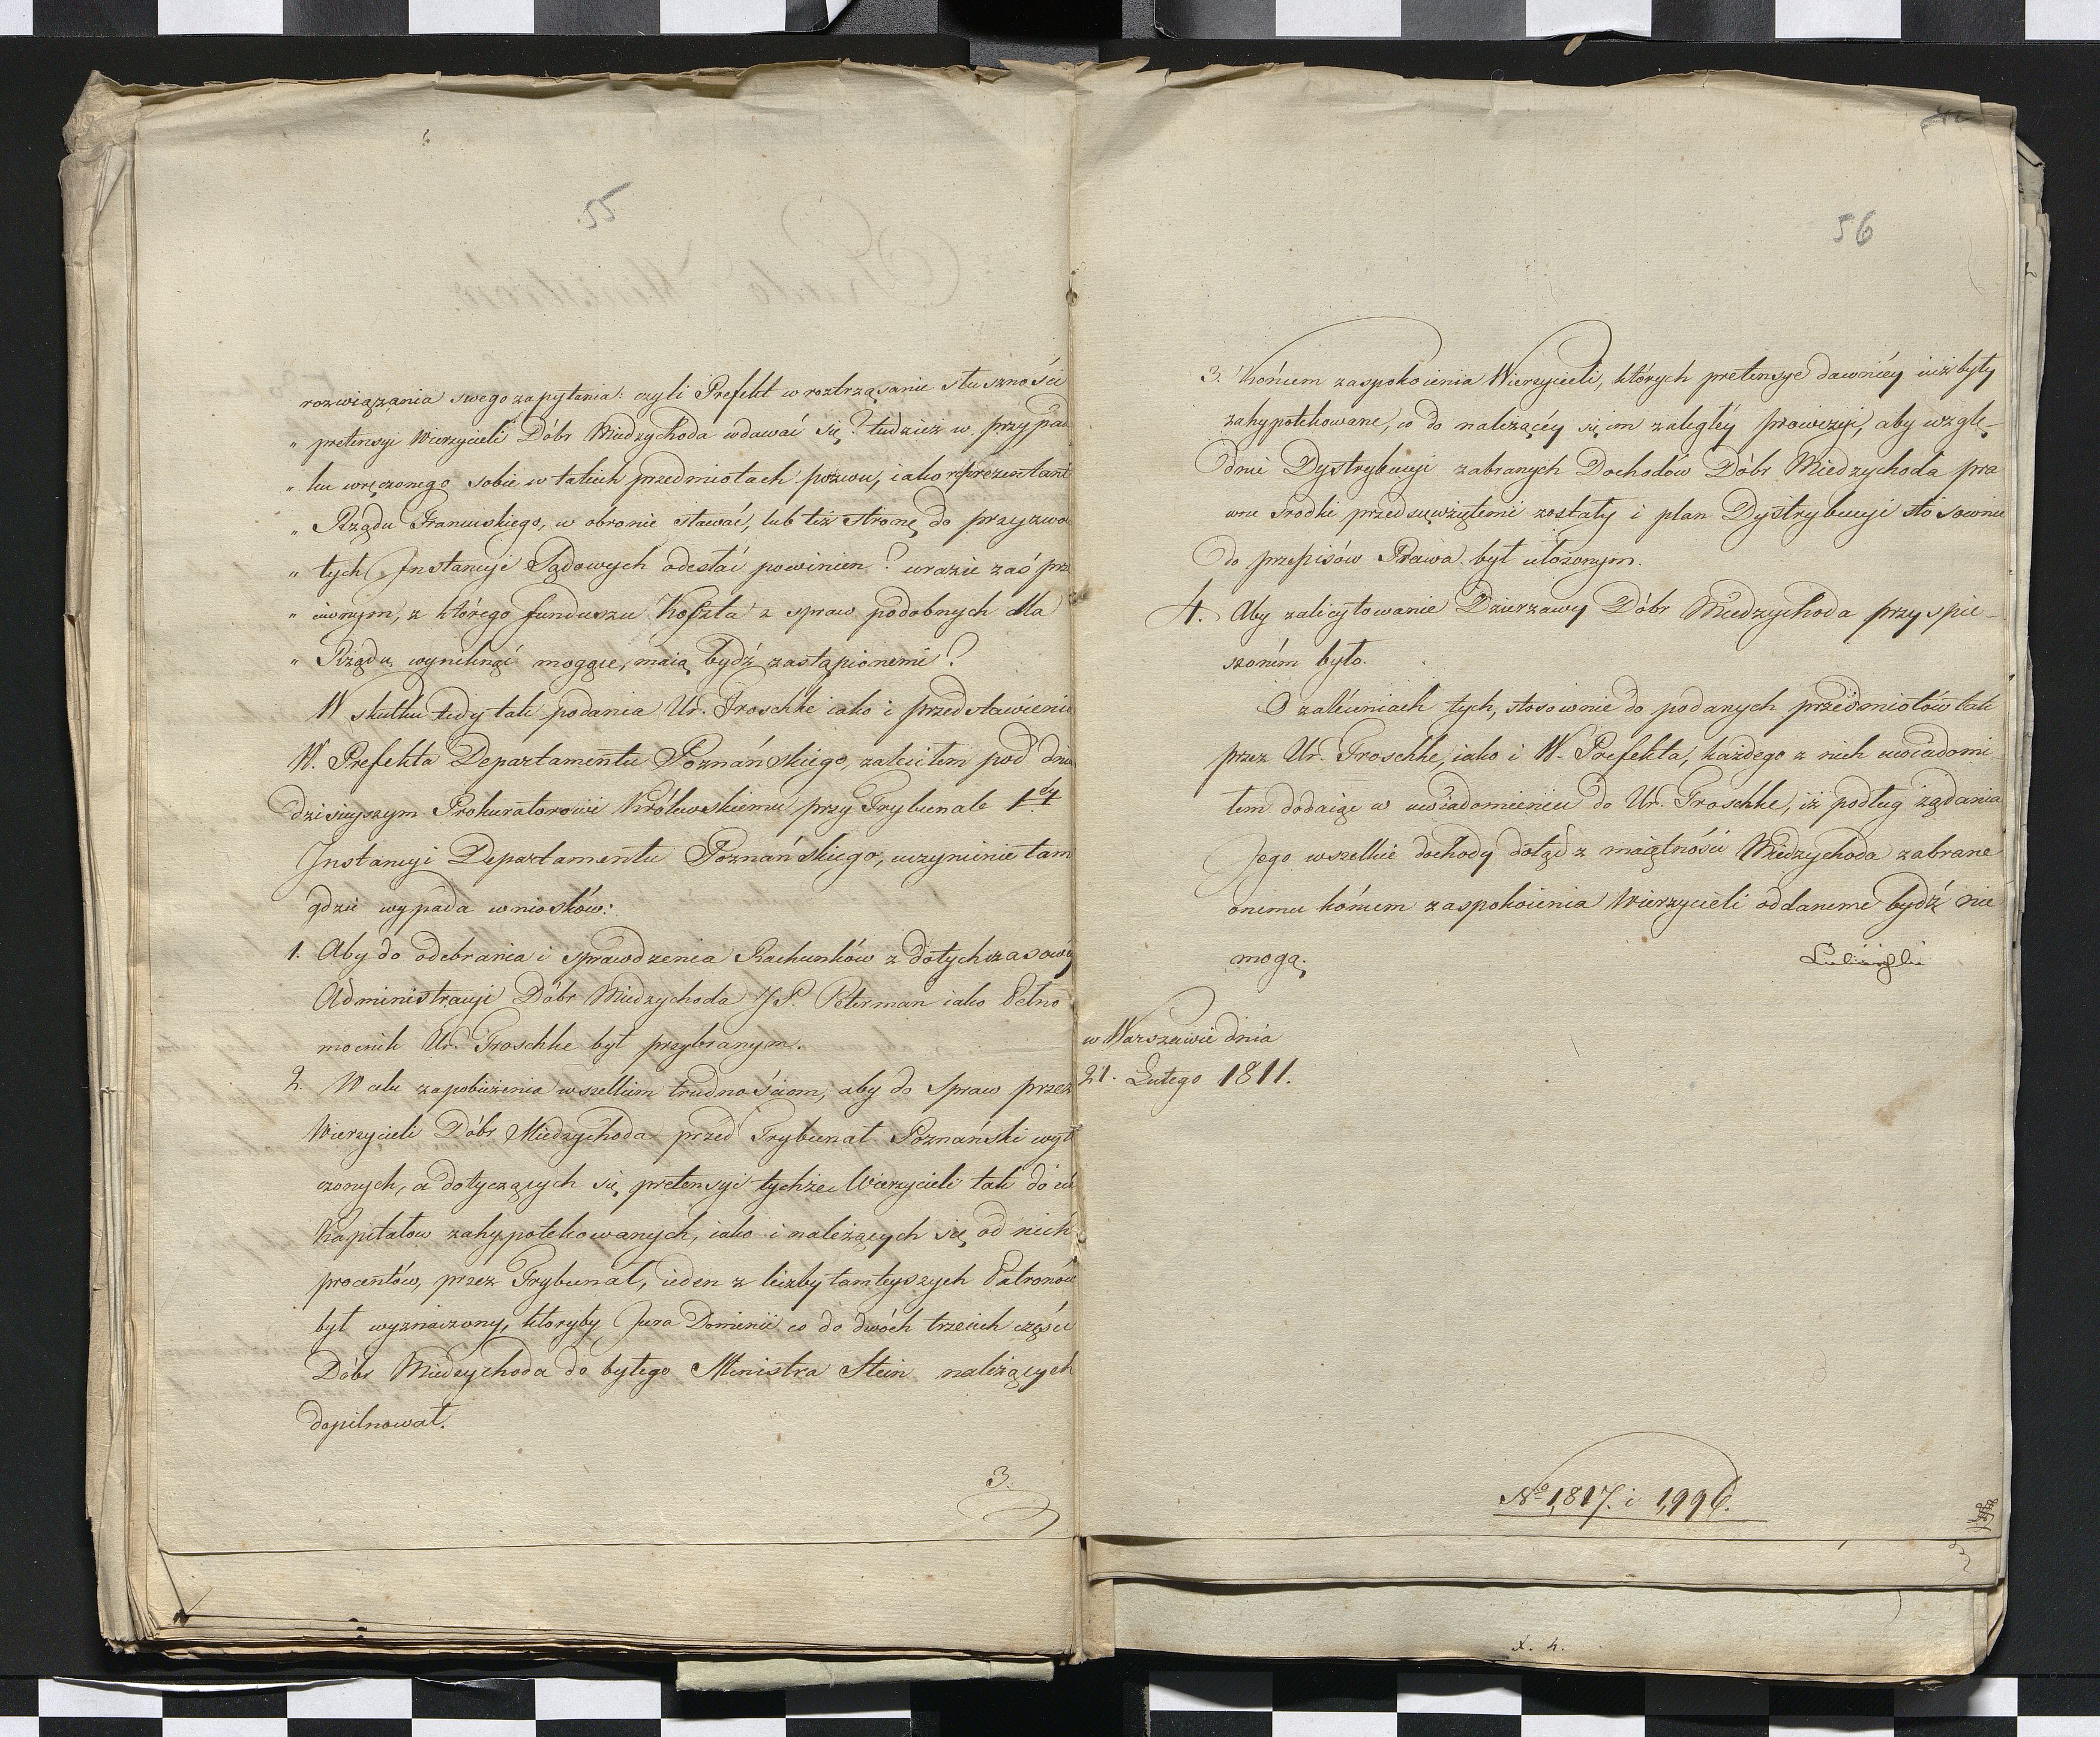 55
rozwiązania swego zapytania: czyli Prefekt w roztrząsanie słuszności
„ pretensyi Wierzycieli Dóbr Miedzychoda wdawać się? tudzież w przypad
„ ku wręczonego sobie w takich przedmiotach pozwu, iako reprezentant
„ Rządu Francuskiego, w obronie stawać, lub też stronę do przyzwo
„ tych Instancyi Sądowych odesłać powinien? w razie zaś prze
„ ciwnym, z którego funduszu Koszta z spraw podobnych dla
„ Rządu wyniknąć mogące, maią bydź zastąpionemi?
W skutku tedy tak podania Ur. Troschke iako i przedstawienia
W. Prefekta Departamentu Poznańskiego, zaleciłem pod dniem
dzisieyszym Prokuratorowi Królewskiemu przy Trybunale 1dy
Instancyi Departamentu Poznańskiego, uczynienie tam
gdzie wypada wniosków:
1. Aby do odebrania i sprawdzenia Rachunków z dotychczasowey
Administracyi Dóbr Miedzychoda JP. Peterman iako Pełno
mocnik Ur. Troschke był przybranym.
2. W celu zapobieżenia wszelkim trudnościom, aby do Spraw przez
Wierzycieli Dóbr Miedzychoda przed Trybunał Poznański wyt
czonych, a dotyczących się pretensyi tychże Wierzycieli tak do ich
Kapitałow zahypotekowanych, iako i należących się od nich
procentów, przez Trybunał, ieden z liczby tamteyszych Patronów
był wyznaczony, któryby Jura Dominii co do dwóch trzecich części
Dóbr Miedzychoda do byłego Ministra Stein należących
dopilnował.
3.
56
3. Końcem zaspokoienia Wierzycieli, których pretensye dawniéy iuż były
zahypotekowane, co do należącéy się im zaległéy prowizyi, aby wzglę-
dnie Dystrybucyi zabranych Dochodów Dóbr Miedzychoda pra
wne srodki przedsięwziętemi zostały i plan Dystrybucyi stosownie
do przepisów Prawa był ułożonym.
4. Aby zalicytowanie Dzierzawy Dóbr Miedzychoda przyspie-
szoném było.
O zaleceniach tych, stosownie do podanych przedmiotów tak
przez Ur. Troschke, iako i W. Prefekta, każdego z nich uwiadomi
łem dodaiąc w uwiadomieniu do Ur. Troschke, iż podług żądania
Jego wszelkie dochody dotąd z maiętności Miedzychoda zabrane
onemu końcem zaspokoienia Wierzycieli oddaneme bydź nie
mogą.
w Warszawie dnia
21. Lutego 1811.
No 1,817. i 1,996.